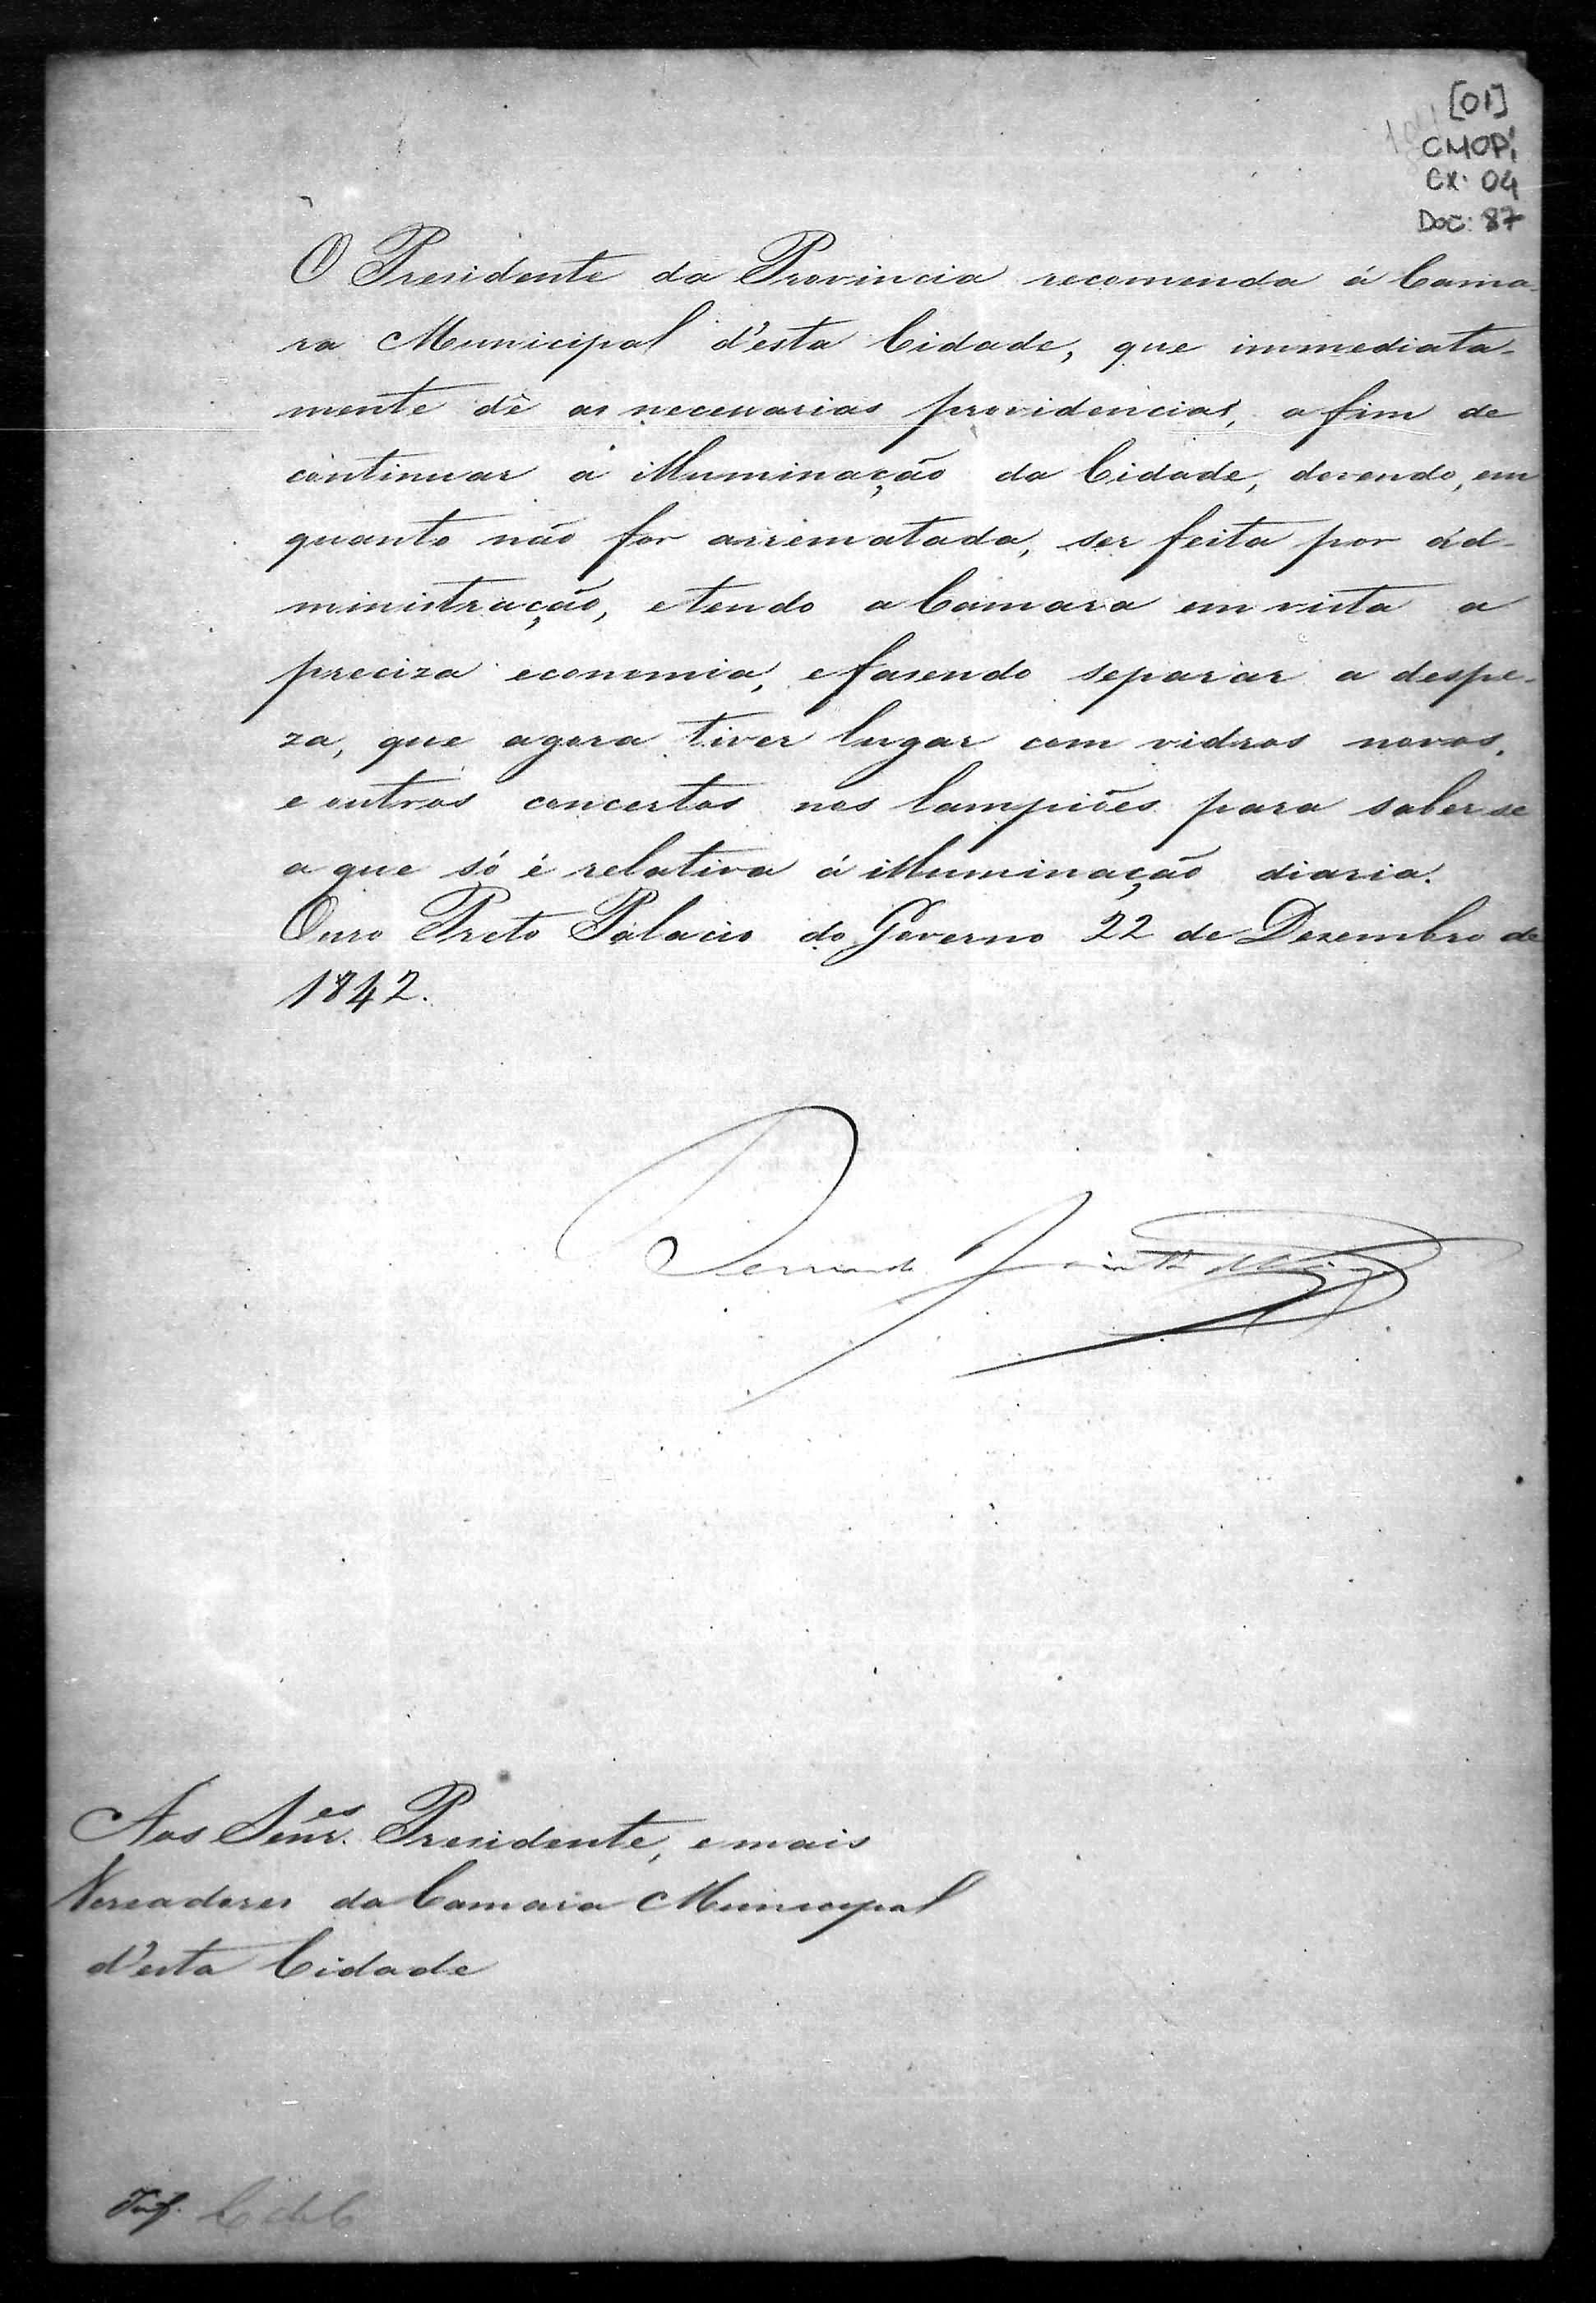 [01]
CMOP
CX. 04
Doc: 87
O Presidente da Provincia recomenda á Cama-
ra Municipal d'esta Cidade, que immediata-
mente dê as necessarias providencias, a fim de
continuar a illuminação da Cidade, devendo, em
quanto não for arrematada, ser feita por ad-
ministração, e tendo a Camara em vista a
preciza economia, e fasendo separar a despe-
za, que agora tiver lugar com vidros novos,
e outros concertos nos lampiões para saber se
a que só é relativa á illuminação diaria.
Ouro Preto Palacio do Governo 22 de Desembro de
1842.
Aos Senr.es Presidente, e mais
Vereadores da Camara Municipal
d'esta Cidade